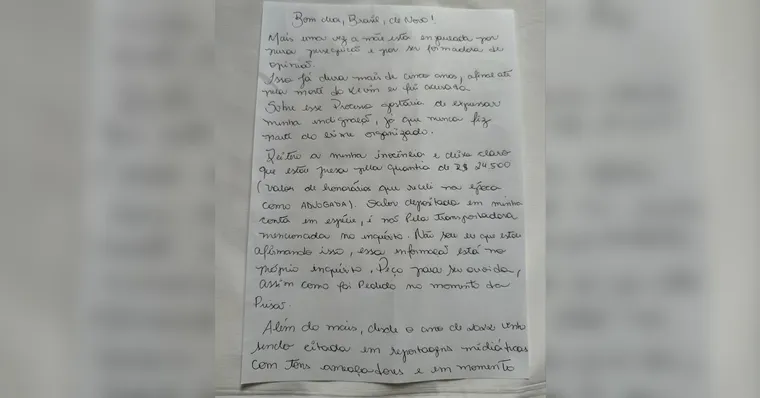 Bom dia, Brasil, de Novo!
Mais uma vez a mãe está enjaulada por
pura perseguição e por ser formadora de
opinião.
Isso já dura mais de cinco anos, afinal até
pela morte do Kevin eu fui acusada.
Sobre esse Processo gostaria de expressar
minha indignação, já que nunca fiz
parte do crime organizado.
Reitero a minha inocência e deixo claro
que estou presa pela quantia de R$ 24.500
(valor de honorários que recebi na época
como ADVOGADA). Valor depositado em minha
conta em espécie, e não pela transportadora
mencionada no inquérito. Não sou eu que estou
afirmando isso, essa informação está no
próprio inquérito. Peço para ser ouvida,
assim como foi Pedido no momento da
Prisão.
Além do mais, desde o ano de venho
sendo citada em reportagens midiáticas
com tons ameaçadores e em momento